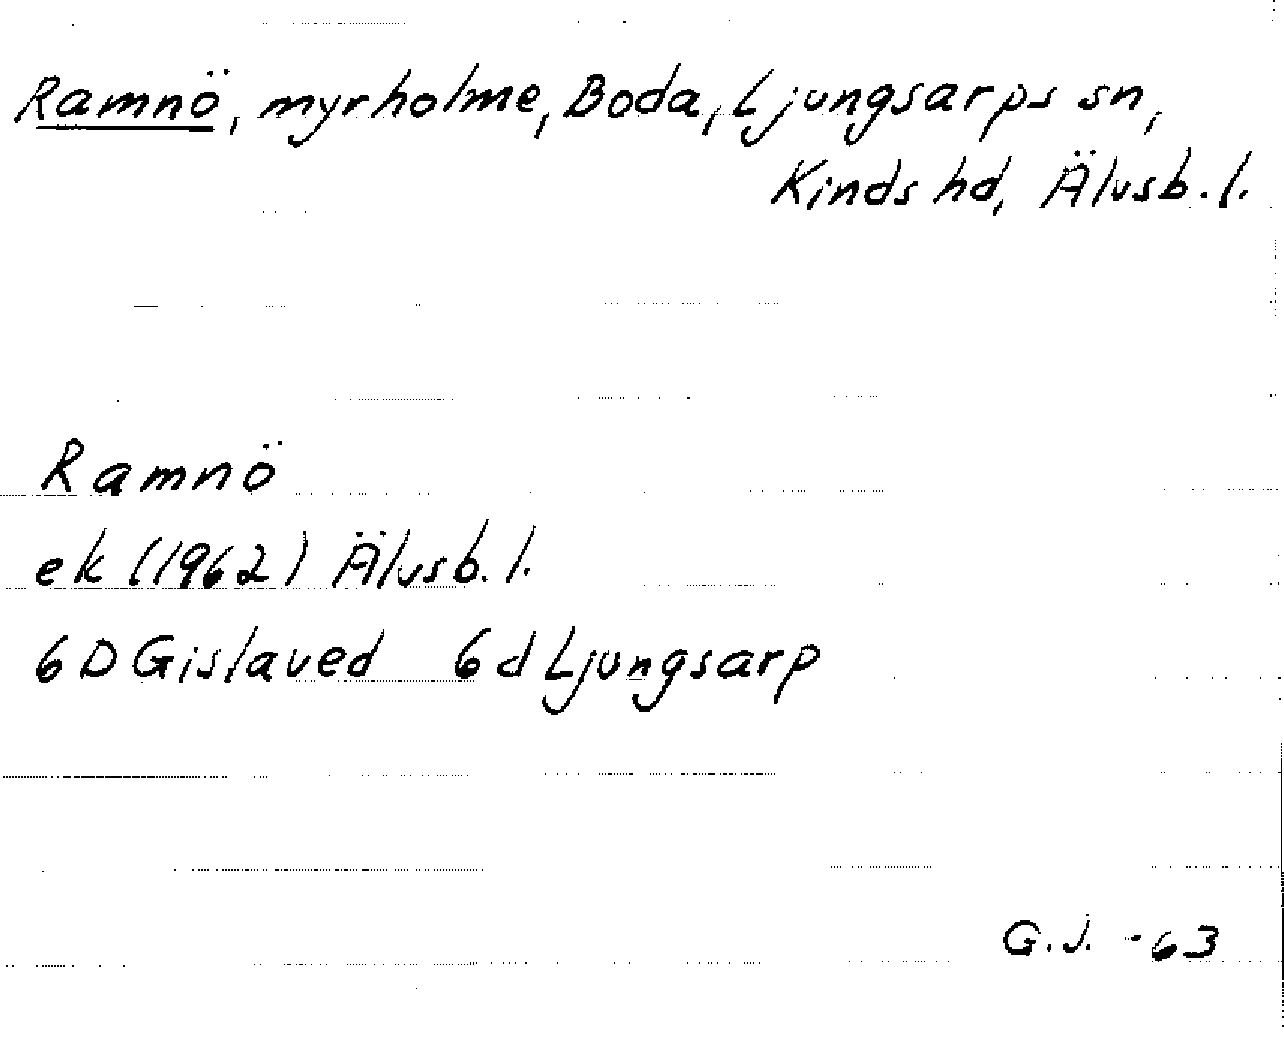 Ramnö, myrholme, Boda, Ljungsarps sn,
Kinds hd, Älvsb. l.
Ramnö
ek (1962) Älvsb. l.
6D Gislaved 6d Ljungsarp
G.J. -63